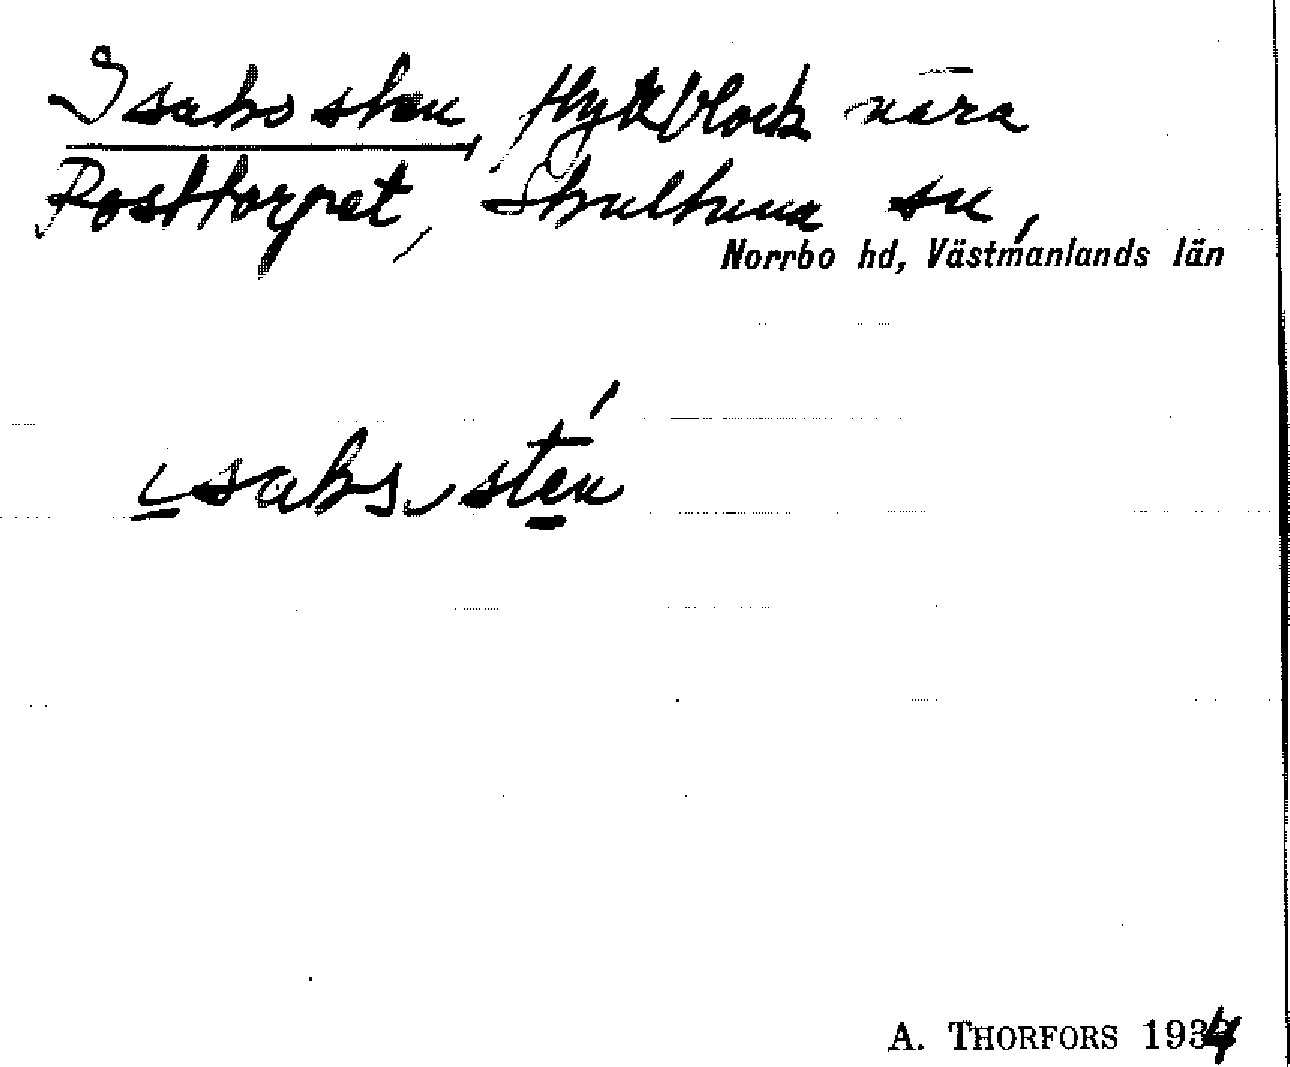 Isaks sten, flyttblock nära
Posttorpet, Skultuna sn,
Norrbo hd, Västmanlands län
ısaks ‿ sten
A. THORFORS 1934